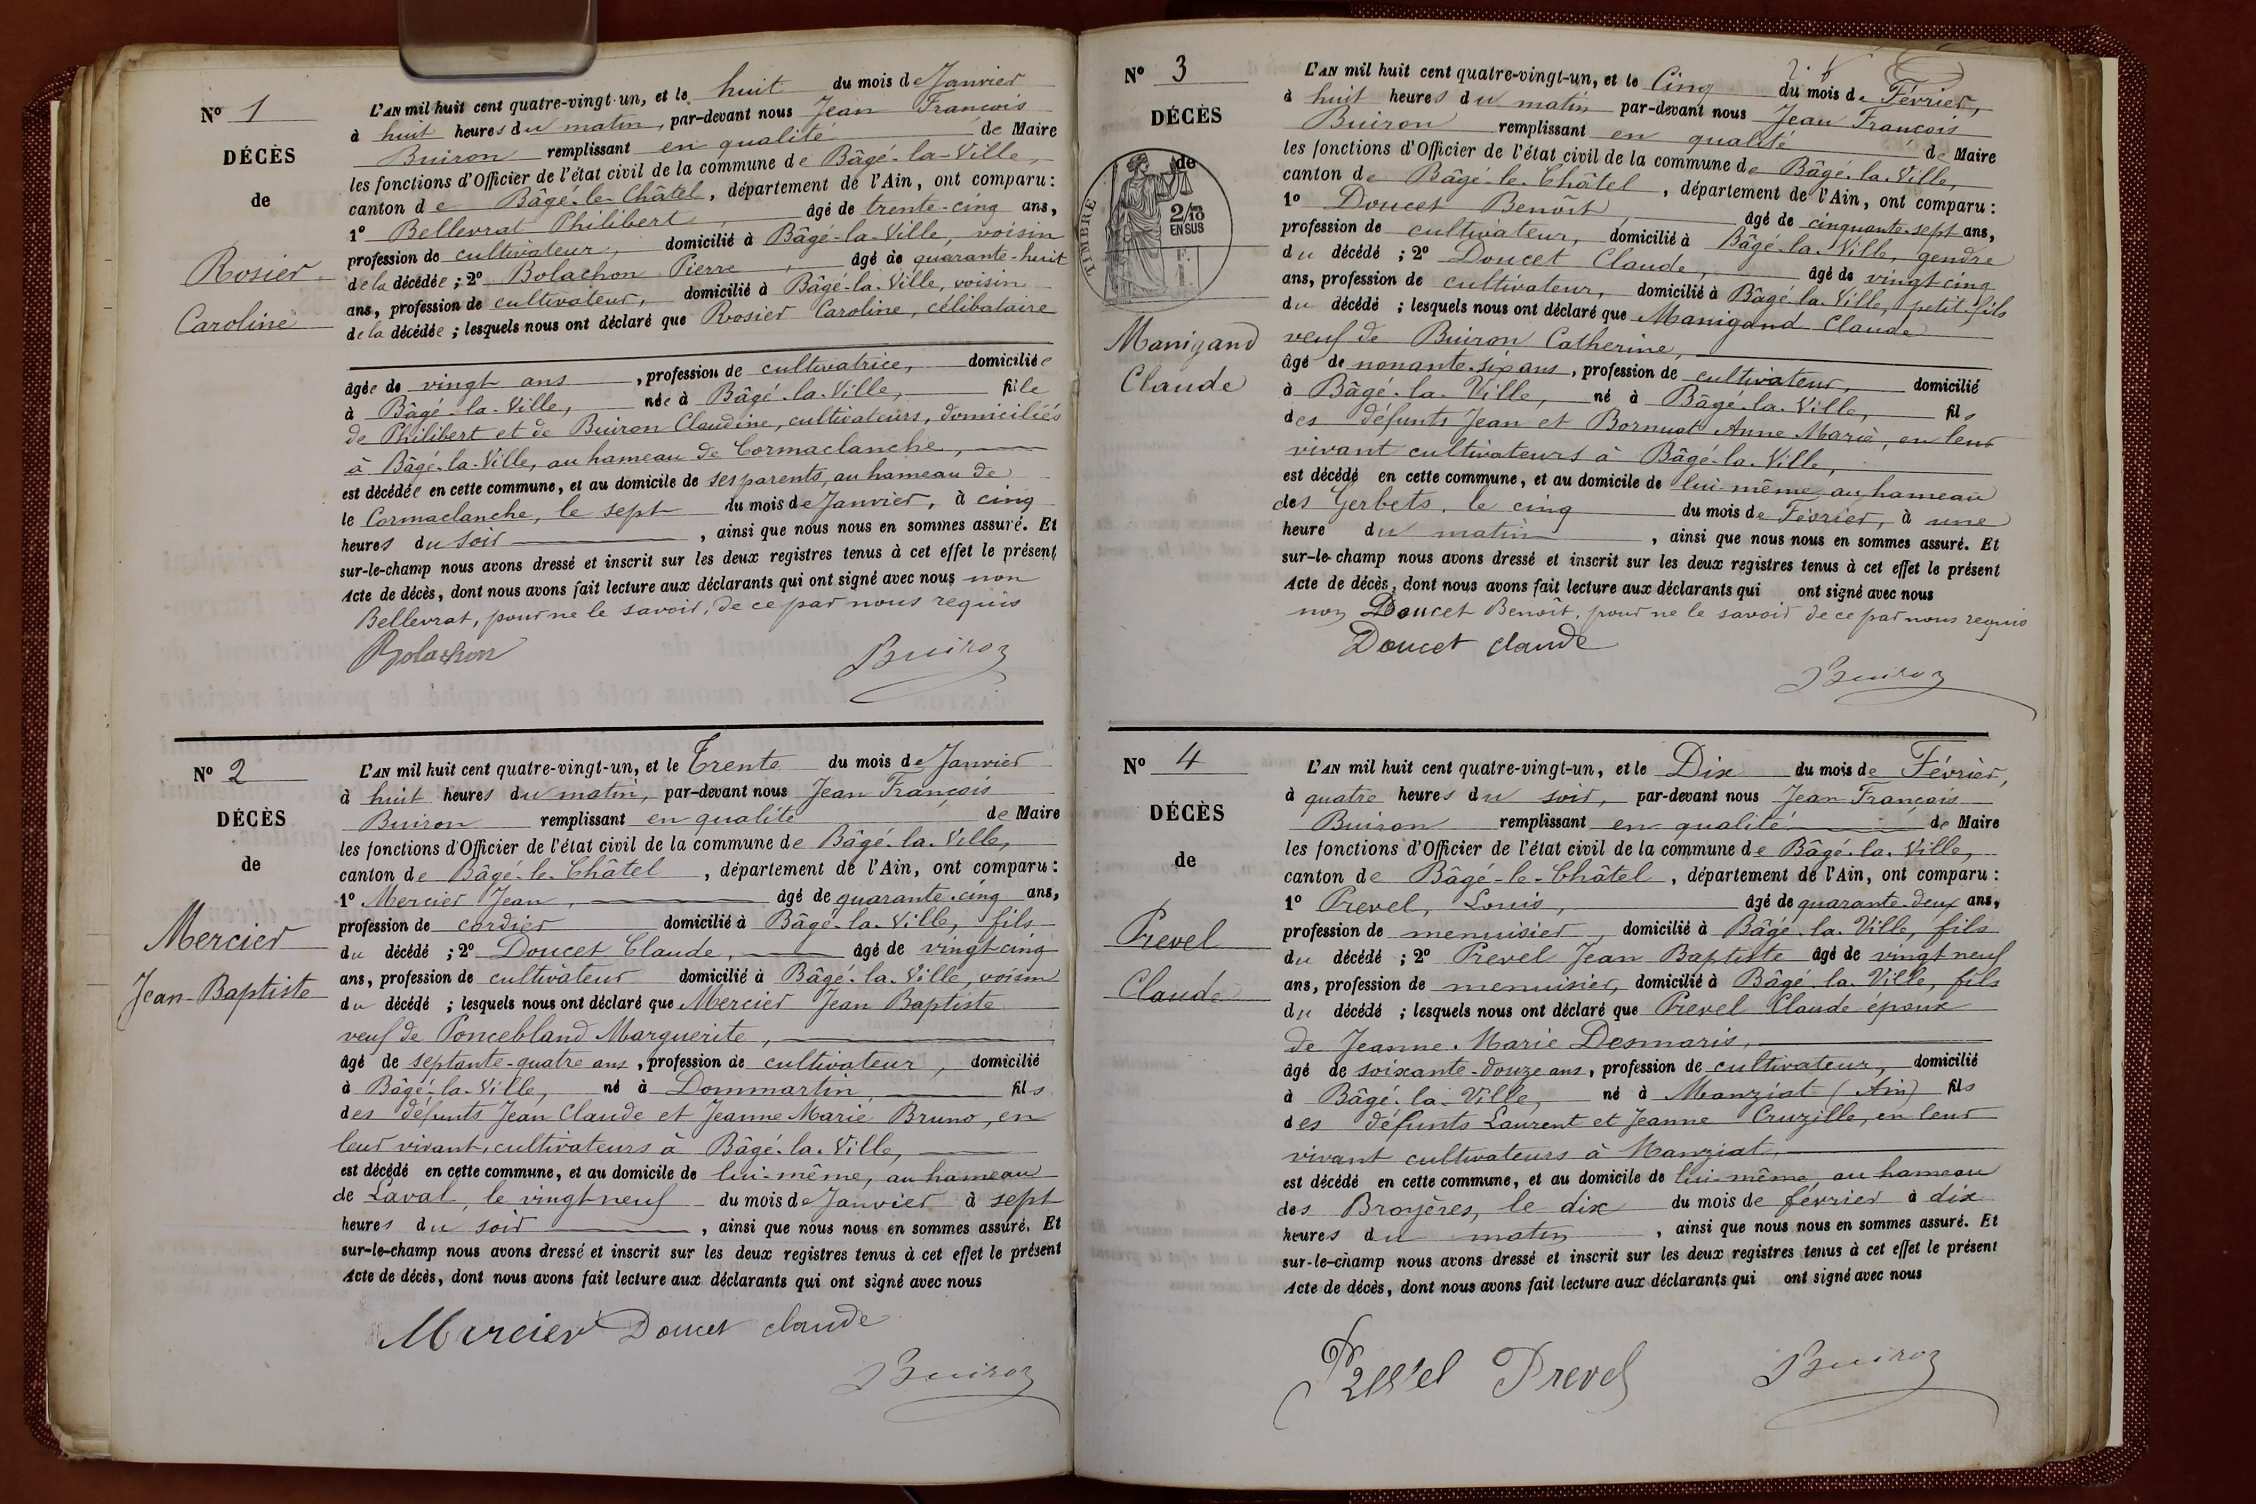 Nº 1
DÉCÈS
de
Rosier
Caroline
L'AN mil huit cent quatre-vingt-un, et le huit du mois de Janvier
à huit heures du matin, par-devant nous Jean François
Buiron remplissant en qualité de Maire
les fonctions d'Officier de l'état civil de la commune de Bâgé-la-Ville,
canton de Bâgé-le-Châtel, département de l'Ain, ont comparu :
1º Bellevrat Philibert, âgé de trente-cinq ans,
profession de cultivateur, domicilié à Bâgé-la-Ville, voisin
de la décédée ; 2º Bolachon Pierre, âgé de quarante-huit
ans, profession de cultivateur, domicilié à Bâgé-la-Ville, voisin
de la décédée ; lesquels nous ont déclaré que Rosier Caroline, célibataire
âgée de vingt ans, profession de cultivatrice, domiciliée
à Bâgé-la-Ville, née à Bâgé-la-Ville, fille
de Philibert et de Buiron Claudine, cultivateurs, domiciliés
à Bâgé-la-Ville, au hameau de Cormaclanche,
est décédée en cette commune, et au domicile de ses parents, au hameau de
le Cormaclanche, le sept du mois de Janvier, à cinq
heures du soir, ainsi que nous nous en sommes assuré. Et
sur-le-champ nous avons dressé et inscrit sur les deux registres tenus à cet effet le présent
Acte de décès, dont nous avons fait lecture aux déclarants qui ont signé avec nous non
Bellevrat, pour ne le savoir, de ce par nous requis
Bolachon Buiron
Nº 2
DÉCÈS
de
Mercier
Jean-Baptiste
L'AN mil huit cent quatre-vingt-un, et le Trente du mois de Janvier
à huit heures du matin, par-devant nous Jean François
Buiron remplissant en qualité de Maire
les fonctions d'Officier de l'état civil de la commune de Bâgé-la-Ville,
canton de Bâgé-le-Châtel, département de l'Ain, ont comparu :
1º Mercier Jean, âgé de quarante-cinq ans,
profession de cordier domicilié à Bâgé-la-Ville, fils
du décédé ; 2º Doucet Claude, âgé de vingt cinq
ans, profession de cultivateur domicilié à Bâgé-la-Ville, voisin
du décédé ; lesquels nous ont déclaré que Mercier Jean Baptiste
veuf de Poncebland Marguerite,
âgé de septante-quatre ans, profession de cultivateur, domicilié
à Bâgé-la-Ville, né à Dommartin, fils
des défunts Jean Claude et Jeanne Marie Bruno, en
leur vivant, cultivateurs à Bâgé-la-Ville,
est décédé en cette commune, et au domicile de lui-même, au hameau
de Laval, le vingt neuf du mois de Janvier à sept
heures du soir, ainsi que nous nous en sommes assuré. Et
sur-le-champ nous avons dressé et inscrit sur les deux registres tenus à cet effet le présent
Acte de décès, dont nous avons fait lecture aux déclarants qui ont signé avec nous
Mercier Doucet claude
Buiron
Nº 3
DÉCÈS
de
TIMBRE
2/10
EN SUS
Manigand
Claude
L'AN mil huit cent quatre-vingt-un, et le Cinq du mois de Février,
à huit heures du matin par-devant nous Jean François
Buiron remplissant en qualité de Maire
les fonctions d'Officier de l'état civil de la commune de Bâgé-la-Ville,
canton de Bâgé-le-Châtel, département de l'Ain, ont comparu :
1º Doucet Benoît, âgé de cinquante-sept ans,
profession de cultivateur, domicilié à Bâgé-la-Ville, gendre
du décédé ; 2º Doucet Claude, âgé de vingt cinq
ans, profession de cultivateur, domicilié à Bâgé-la-Ville, petit-fils
du décédé ; lesquels nous ont déclaré que Manigand Claude
veuf de Buiron Catherine,
âgé de nonante-six ans, profession de cultivateur, domicilié
à Bâgé-la-Ville, né à Bâgé-la-Ville, fils
des défunts Jean et Bornuat Anne Marie, en leur
vivant cultivateurs à Bâgé-la-Ville,
est décédé en cette commune, et au domicile de lui-même au hameau
des Gerbets, le cinq du mois de Février, à une
heure du matin, ainsi que nous nous en sommes assuré. Et
sur-le-champ nous avons dressé et inscrit sur les deux registres tenus à cet effet le présent
Acte de décès, dont nous avons fait lecture aux déclarants qui ont signé avec nous
non Doucet Benoît, pour ne le savoir de ce par nous requis
Doucet claude
Buiron
Nº 4
DÉCÈS
de
Prevel
Claude
L'AN mil huit cent quatre-vingt-un, et le Dix du mois de Février,
à quatre heures du soir, par-devant nous Jean François
Buiron remplissant en qualité de Maire
les fonctions d'Officier de l'état civil de la commune de Bâgé-la-Ville,
canton de Bâgé-le-Châtel, département de l'Ain, ont comparu :
1º Prevel, Louis, âgé de quarante-deux ans,
profession de menuisier, domicilié à Bâgé-la-Ville, fils
du décédé ; 2º Prevel Jean Baptiste âgé de vingt neuf
ans, profession de menuisier, domicilié à Bâgé-la-Ville, fils
du décédé ; lesquels nous ont déclaré que Prevel Claude époux
de Jeanne-Marie Desmaris,
âgé de soixante-douze ans, profession de cultivateur, domicilié
à Bâgé-la-Ville, né à Manziat (Ain) fils
des défunts Laurent et Jeanne Cruzille, en leur
vivant cultivateurs à Manziat,
est décédé en cette commune, et au domicile de lui-même, au hameau
des Broyères, le dix du mois de février à dix
heures du matin, ainsi que nous nous en sommes assuré. Et
sur-le-champ nous avons dressé et inscrit sur les deux registres tenus à cet effet le présent
Acte de décès, dont nous avons fait lecture aux déclarants qui ont signé avec nous
Prevel Prevel Buiron